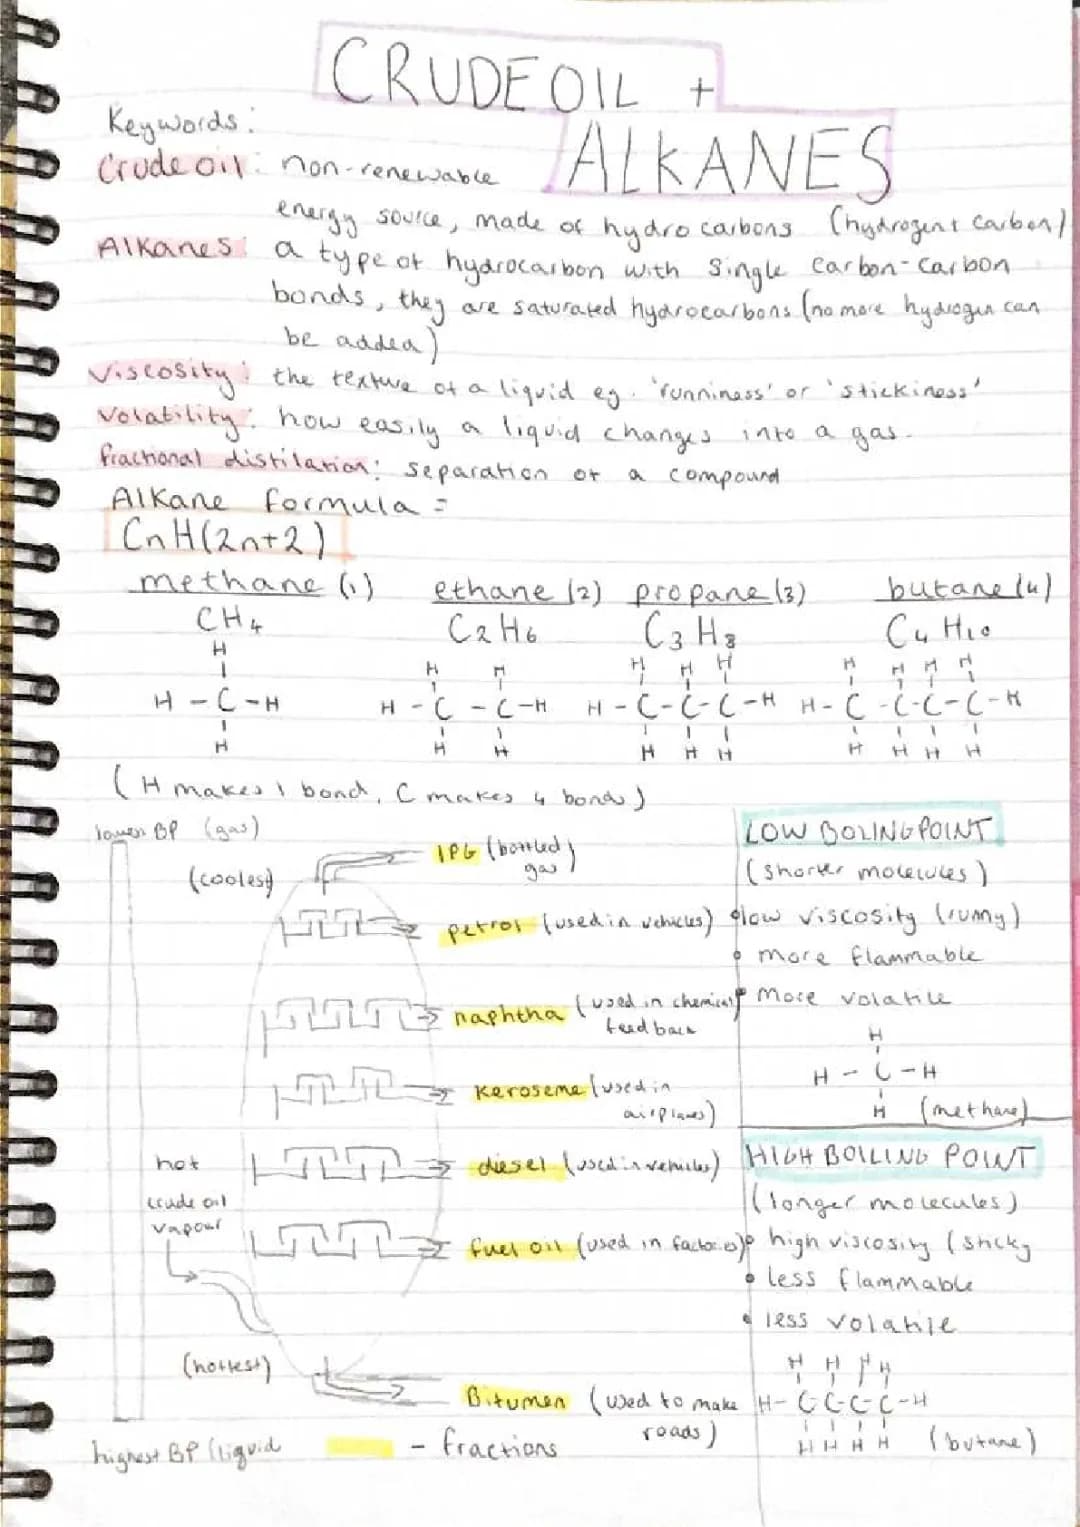 CRUDE OIL +
ALKANES
Keywords:
Crude oil: non-renewable
energy source, made of hydrocarbons (hydrogen + carbon)
Alkanes: a type of hydrocarbon with single carbon-carbon
bonds, they are saturated hydrocarbons (no more hydrogen can
be added)
Viscosity: the texture of a liquid eg. 'runniness' or 'stickiness'
Volatility: how easily a liquid changes into a gas.
fractional distilation: separation of a compound
Alkane formula =
CnH(2n+2)
methane (1) ethane (2) propane (3) butane (4)
CH4 C2H6 C3H8 C4H10
H H H H H H H H H H
H - C - H H - C - C - H H - C - C - C - H H - C - C - C - C - H
H H H H H H H H H H
(H makes 1 bond, C makes 4 bonds)
lower BP (gas)
(coolest)
LPG (bottled
gas)
petrol (used in vehicles)
naphtha (used in chemical
feedback
kerosene (used in
airplanes)
diesel (used in vehicles)
hot
crude oil
vapour
fuel oil (used in factories)
(hottest)
Bitumen (used to make
roads)
highest BP (liquid
- fractions
LOW BOLING POINT
(shorter molecules)
low viscosity (runny)
• more flammable
• more volatile
H
H - C - H
H (methane)
HIGH BOILING POINT
(longer molecules)
• high viscosity (sticky
• less flammable
• less volatile
H H H H
H - C - C - C - C - H
H H H H (butane)